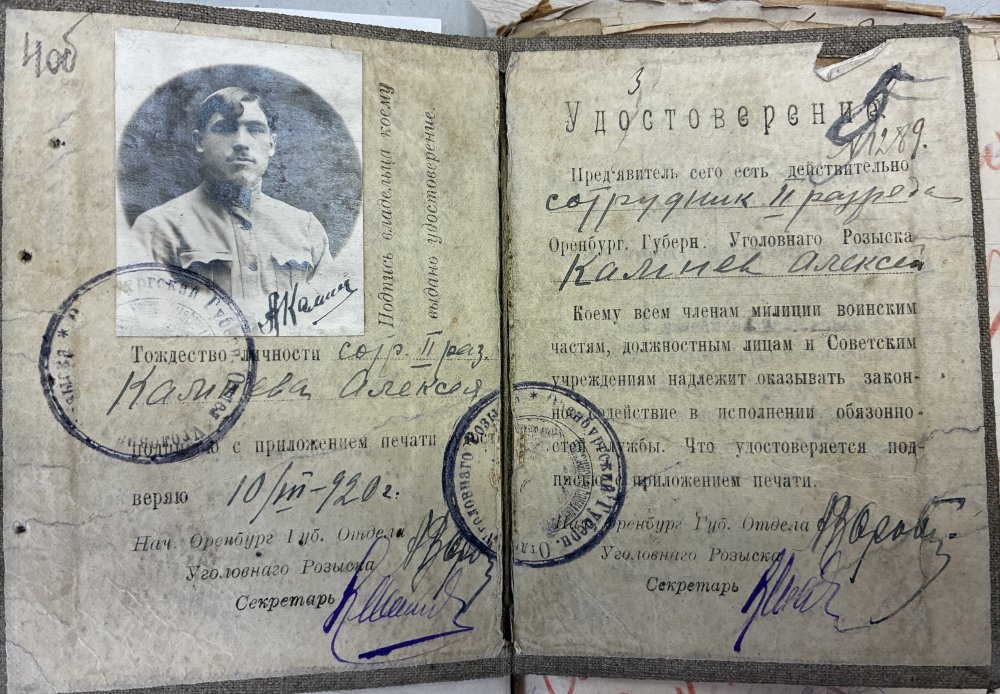 406
Подпись владельца коему
выдано удостоверение
АКалин
Тождество личности сотр. II раз.
Калинева Алексея
подписью с приложением печати
веряю 10/III–920 г.
Нач. Оренбург Губ. Отдела
Уголовнаго Розыска
Секретарь
3
Удостоверение
№ 1289.
Пред'явитель сего есть действительно
сотрудник II разряда
Оренбург. Губерн. Уголовнаго Розыска
Калинев Алексей
Коему всем членам милиции воинским
частям, должностным лицам и Советским
учреждениям надлежит оказывать закон-
ное содействие в исполнении обязонно-
стей службы. Что удостоверяется под-
писью с приложением печати.
Нач. Оренбург Губ. Отдела
Уголовнаго Розыска
Секретарь